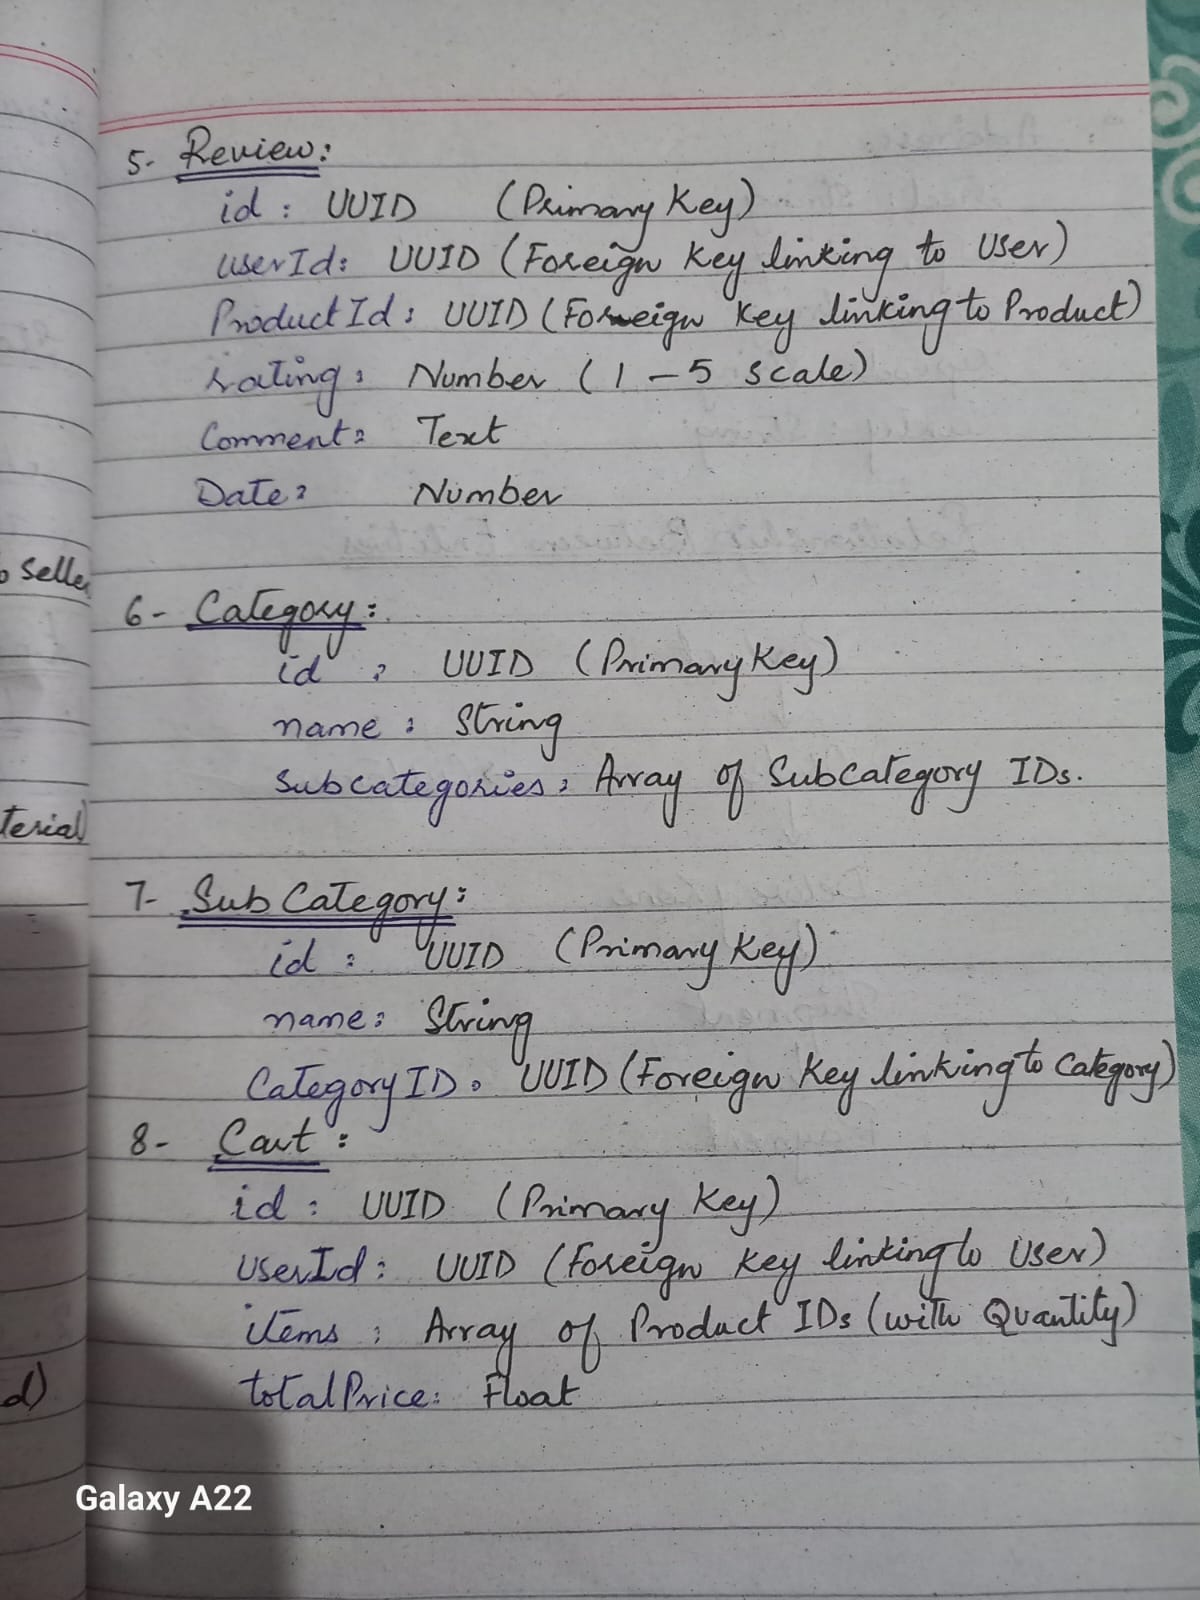 5- Review:
id: UUID (Primary Key)
userId: UUID (Foreign Key linking to User)
ProductId: UUID (Foreign Key linking to Product)
rating: Number (1-5 scale)
Comment: Text
Date: Number
6- Category:
id: UUID (Primary Key)
name: String
Subcategories: Array of SubCategory IDs.
7- SubCategory:
id: UUID (Primary Key)
name: String
CategoryID: UUID (Foreign Key linking to Category)
8- Cart:
id: UUID (Primary Key)
UserId: UUID (Foreign Key linking to User)
items: Array of Product IDs (with Quantity)
totalPrice: Float
Galaxy A22